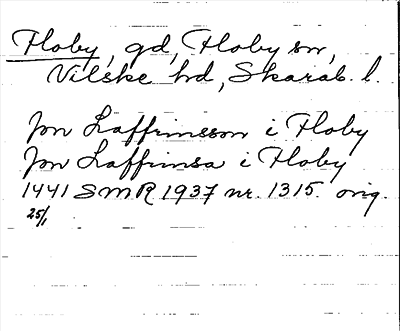 Floby, gd, Floby sn,
Vilske hd, Skarab. l.
Jon Laffrinsson i Floby
Jon Laffrinsa i Floby
1441 SMR 1937 nr. 1315. orig.
25/1